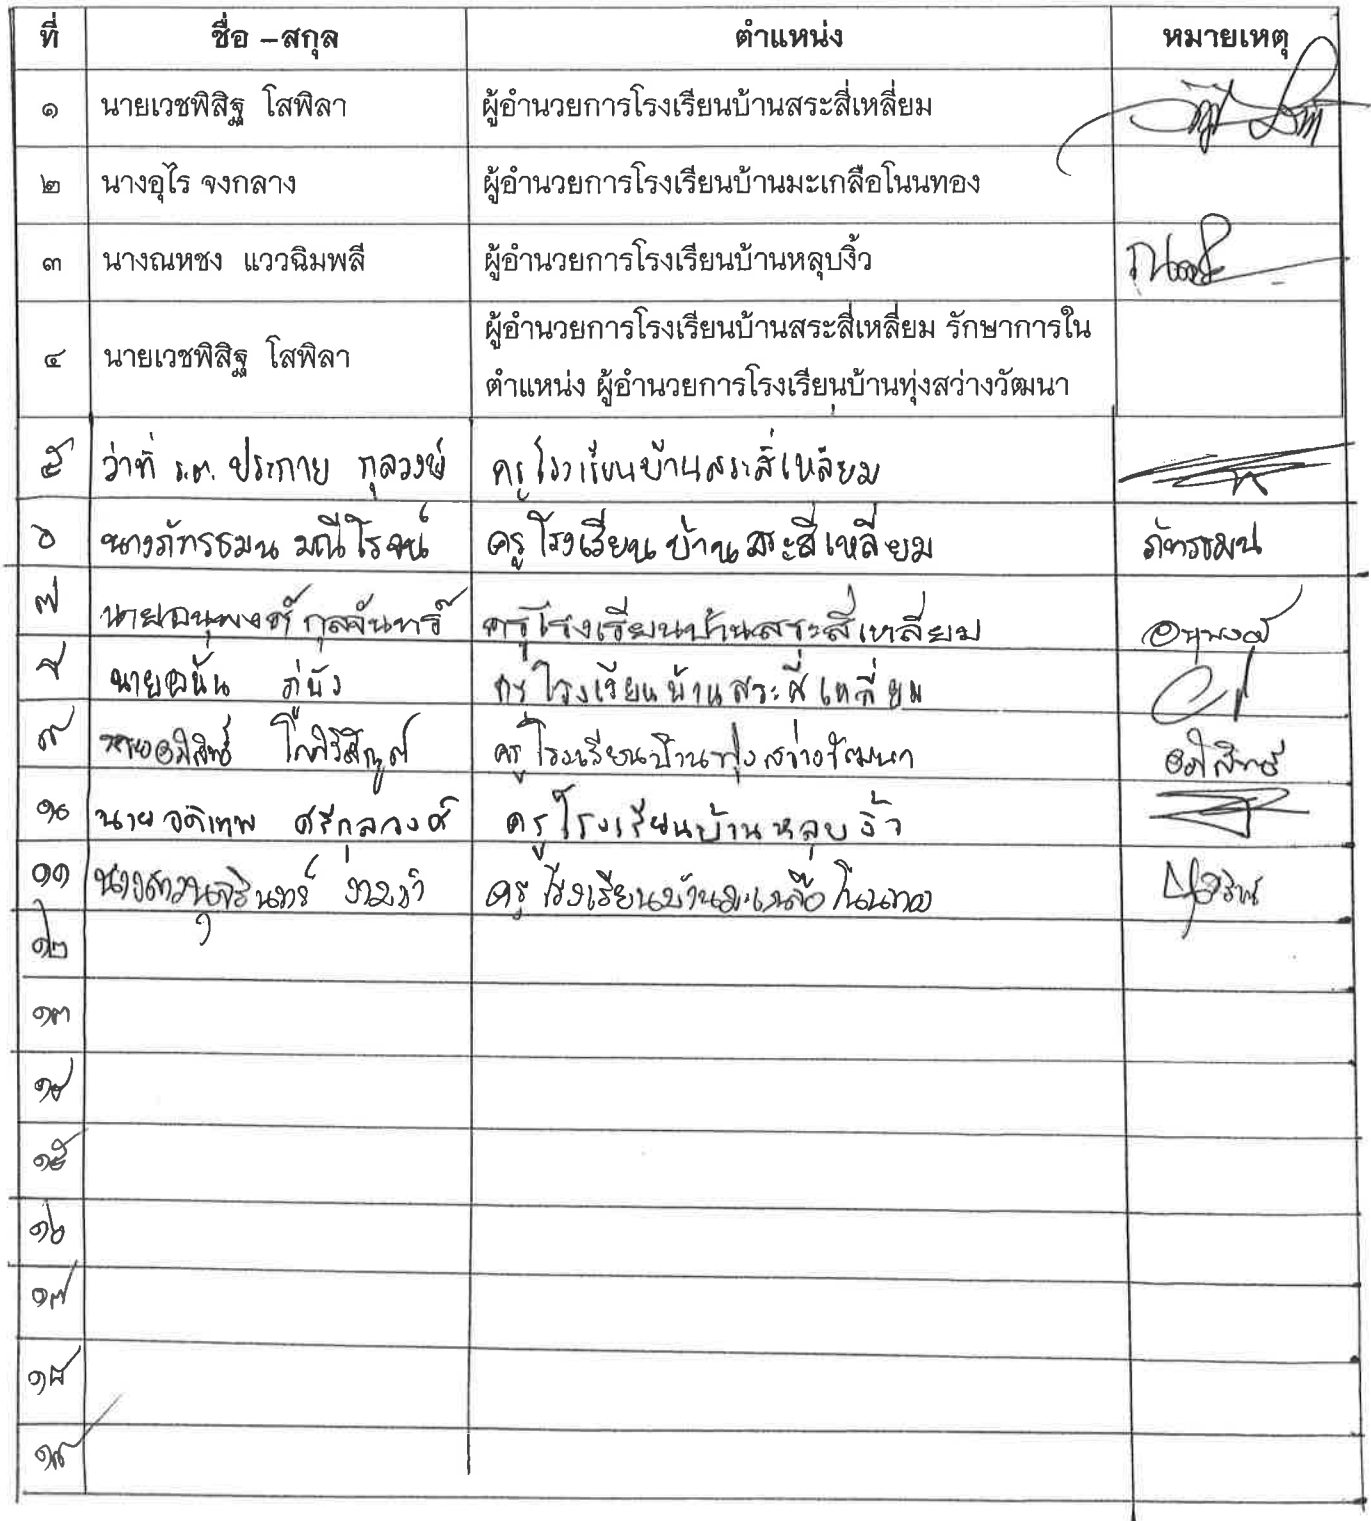 ที่ ชื่อ –สกุล ตำแหน่ง หมายเหตุ
๑ นายเวชพิสิฐ โสพิลา ผู้อำนวยการโรงเรียนบ้านสระสี่เหลี่ยม
๒ นางอุไร จงกลาง ผู้อำนวยการโรงเรียนบ้านมะเกลือโนนทอง
๓ นางณหชง แววฉิมพลี ผู้อำนวยการโรงเรียนบ้านหลุบงิ้ว
๔ นายเวชพิสิฐ โสพิลา ผู้อำนวยการโรงเรียนบ้านสระสี่เหลี่ยม รักษาการใน
ตำแหน่ง ผู้อำนวยการโรงเรียนบ้านทุ่งสว่างวัฒนา
๕ ว่าที่ ร.ต. ประกาย กุลวงษ์ ครูโรงเรียนบ้านสระสี่เหลี่ยม
๖ นางภัทรธมน มณีโรจน์ ครูโรงเรียนบ้านสระสี่เหลี่ยม ภัทรธมน
๗ นายอนุพงศ์ กุลจันทร์ ครูโรงเรียนบ้านสระสี่เหลี่ยม อนุพงศ์
๘ นาย ครูโรงเรียนบ้านสระสี่เหลี่ยม
๙ ครูโรงเรียนบ้านทุ่งสว่างวัฒนา
๑๐ นาย ศรีกุลวงศ์ ครูโรงเรียนบ้านหลุบงิ้ว
๑๑ ครูโรงเรียนบ้านมะเกลือโนนทอง
๑๒
๑๓
๑๔
๑๕
๑๖
๑๗
๑๘
๑๙